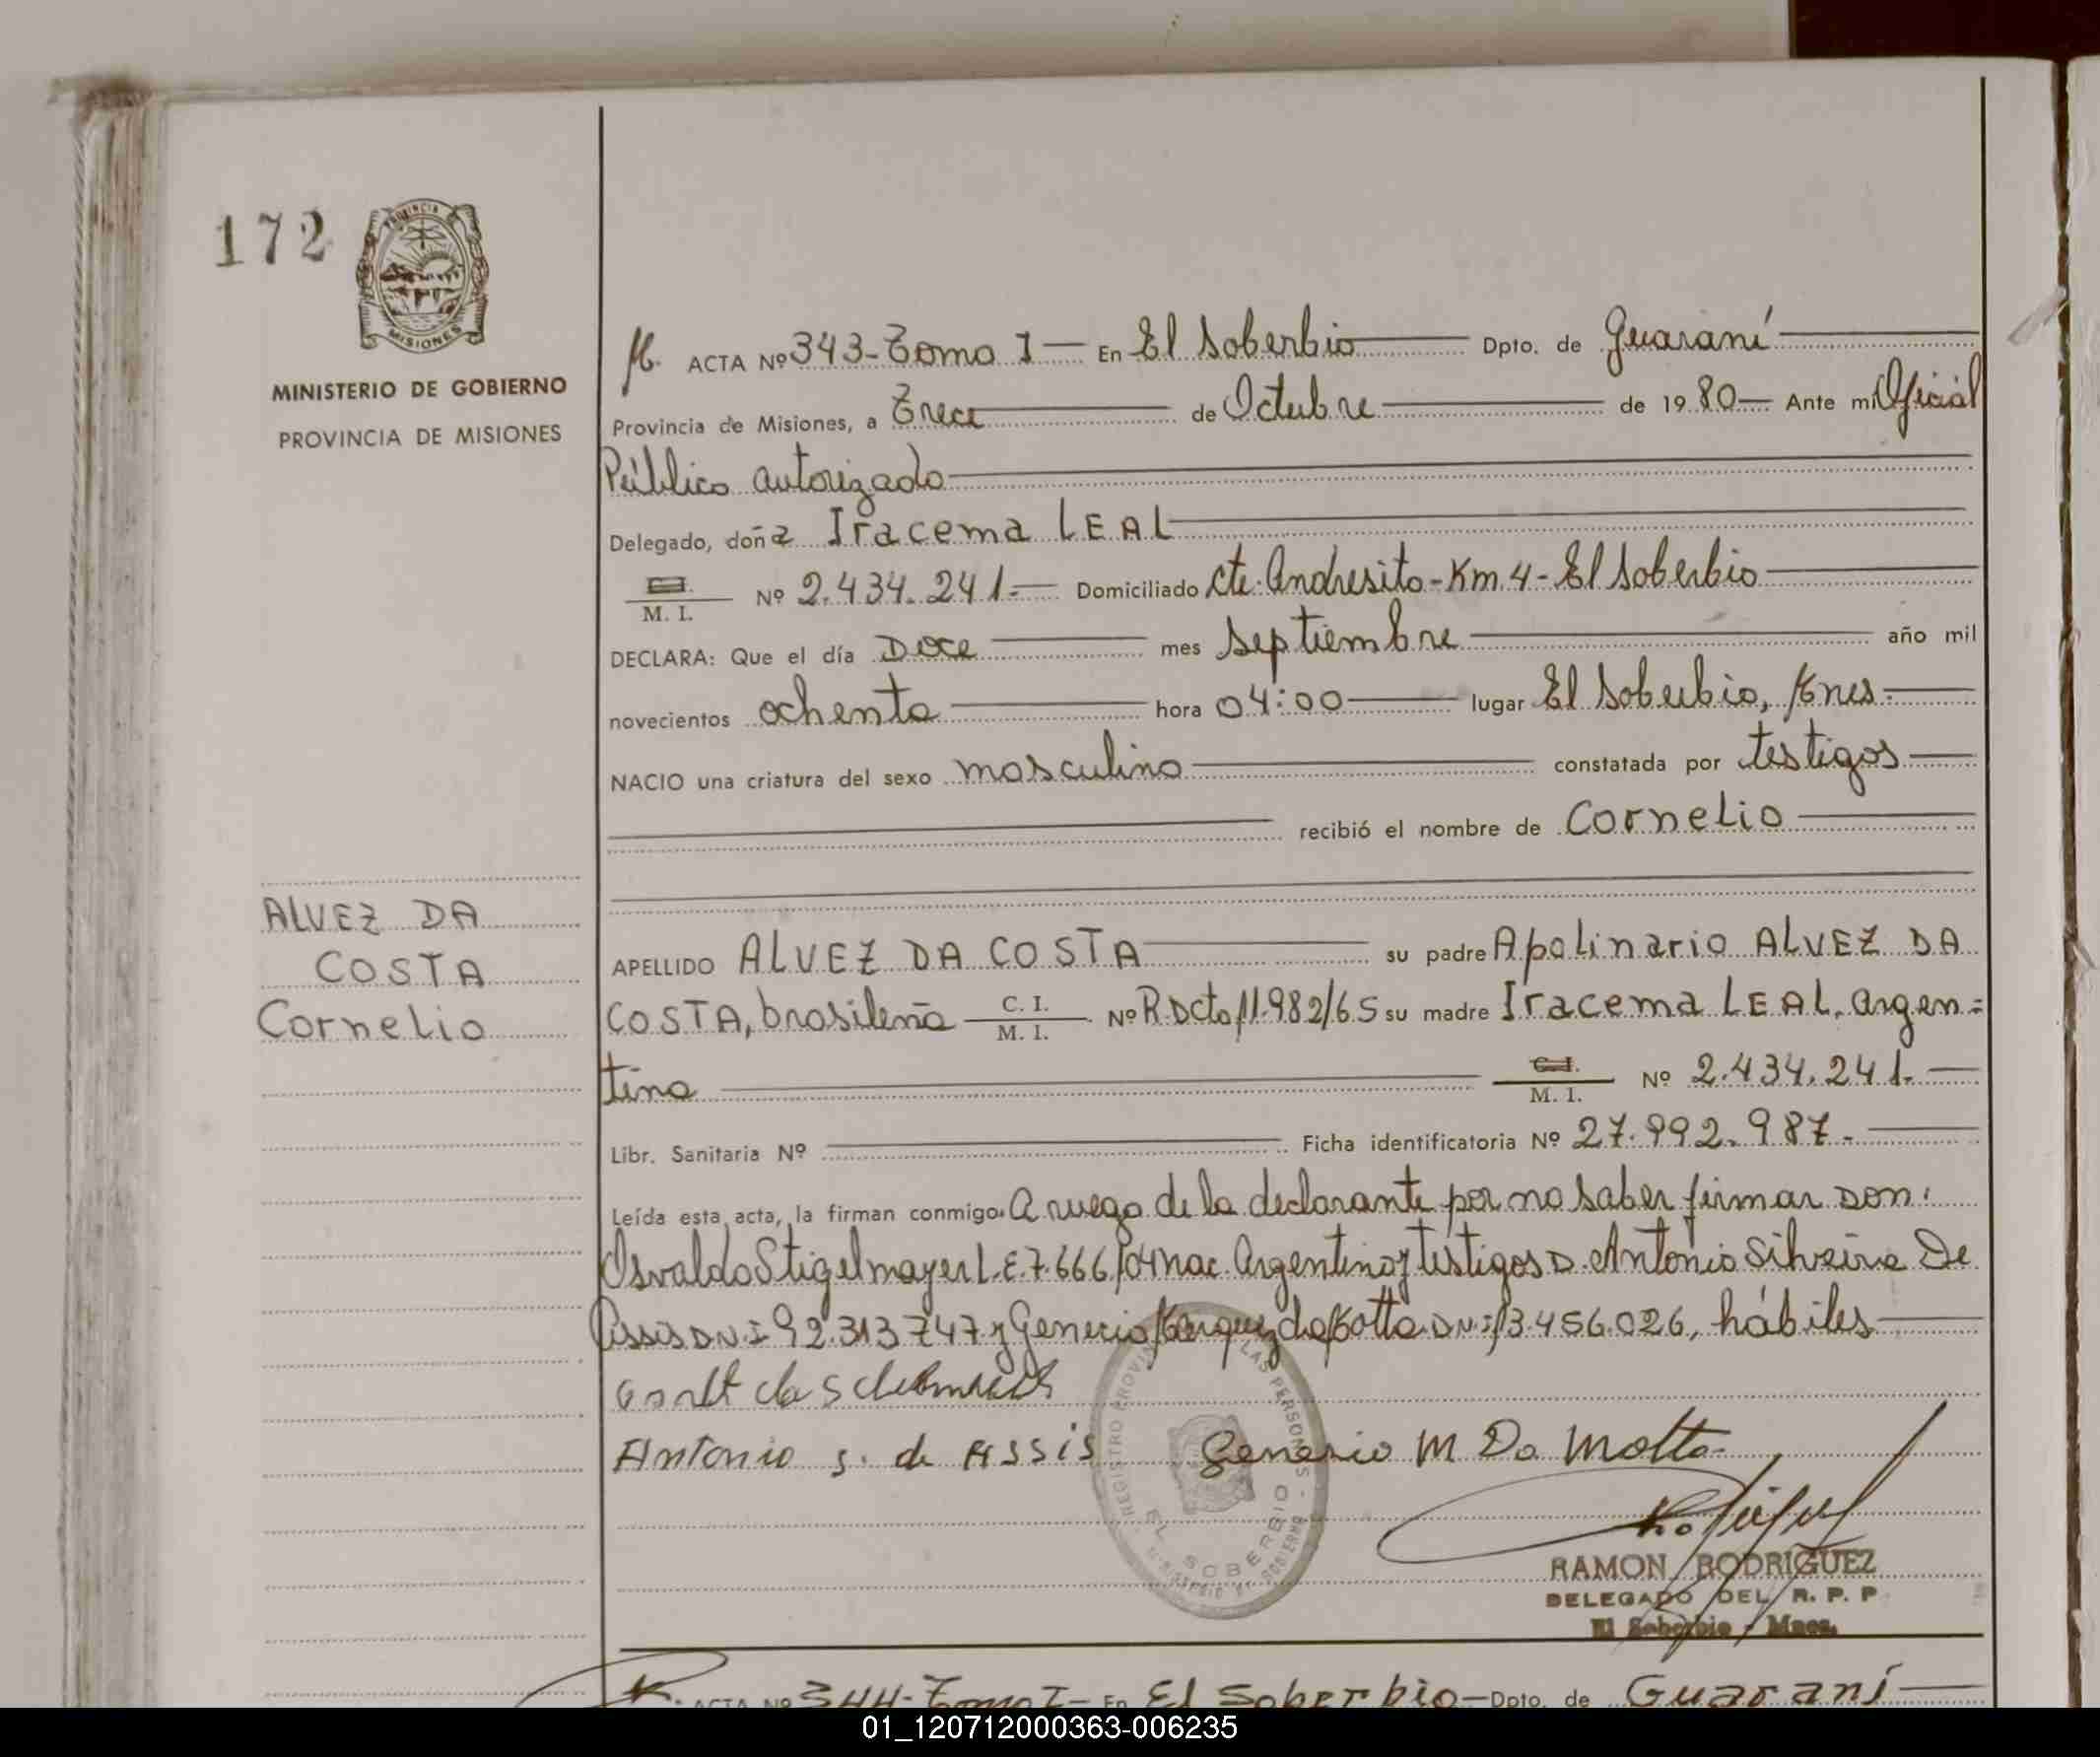 172
PROVINCIA
MISIONES
MINISTERIO DE GOBIERNO
PROVINCIA DE MISIONES
ACTA Nº 343-Tomo I En El Soberbio Dpto. de Guaraní
Provincia de Misiones, a Trece de Octubre de 1980 Ante mi Oficial
Público autorizado
Delegado, doña Iracema LEAL
C.I. M. I. Nº 2.434.241.= Domiciliado Cte. Andresito-Km.4-El Soberbio
DECLARA: Que el día Doce mes septiembre año mil
novecientos ochenta hora 04:00 lugar El Soberbio, Mnes.
NACIO una criatura del sexo masculino constatada por testigos
recibió el nombre de Cornelio
ALVEZ DA
COSTA
Cornelio
APELLIDO ALVEZ DA COSTA su padre Apolinario ALVEZ DA
COSTA, brasileña C. I. M. I. Nº R.Dcto 11.982/65 su madre Iracema LEAL, argen=
tina C.I. M. I. Nº 2.434.241.
Libr. Sanitaria Nº Ficha identificatoria Nº 27.992.987.
Leída esta acta, la firman conmigo. A ruego de la declarante por no saber firmar Don:
Osvaldo Stigelmayer L.E.7.666.104 nac. Argentino y testigos D. Antonio Silveira De
Assis D.N.I 92.313.747 y Genecio Marquez da Motta D.N.I 13.456.026, hábiles
Antonio S. de Assis Genesio M Da Motta
REGISTRO PROVINCIAL DE LAS PERSONAS
EL SOBERBIO
MINISTERIO DE GOBIERNO
RAMON RODRIGUEZ
DELEGADO DEL R. P. P
El Soberbio - Mnes.
ACTA Nº 344-Tomo I- En El Soberbio-Dpto. de Guaraní
01_120712000363-006235